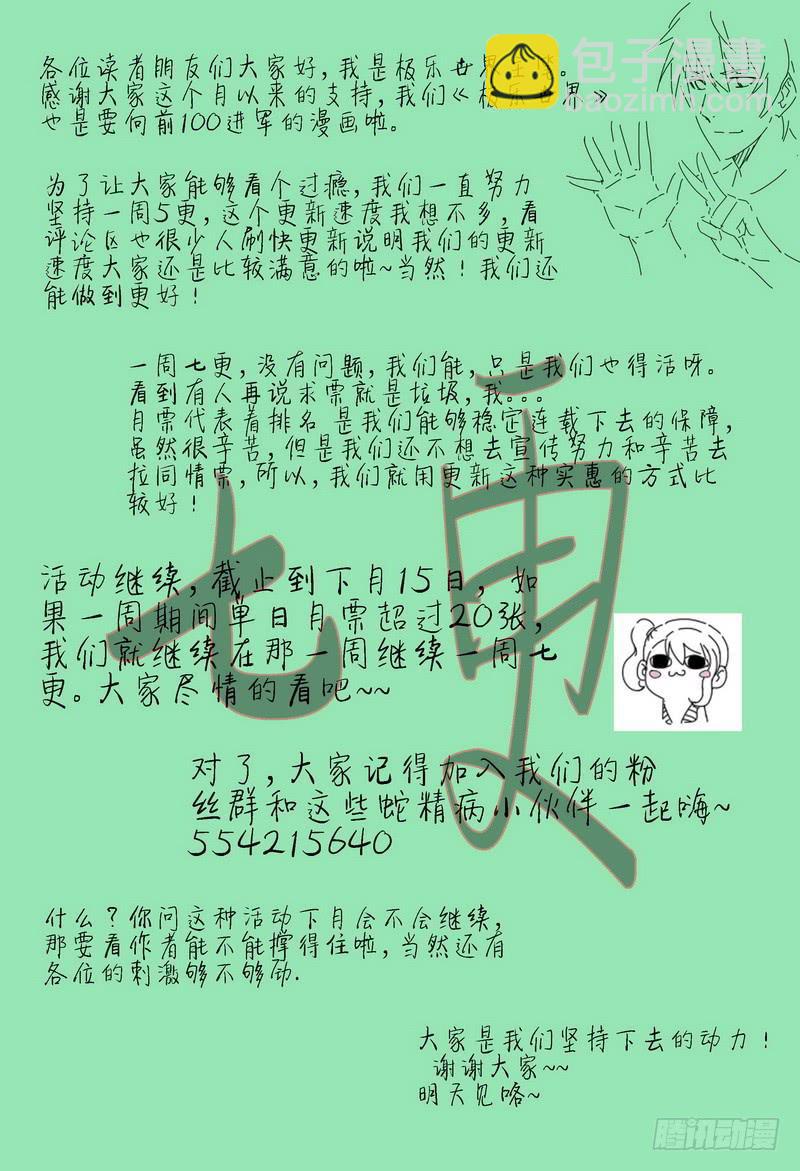 各位读者朋友们大家好，我是极乐世界
包子漫畫
baozimh.com
感谢大家这个月以来的支持，我们《极乐世界》
也是要向前100进军的漫画啦。
为了让大家能够看个过瘾，我们一直努力
坚持一周5更，这个更新速度我想不多，看
评论区也很少人刷快更新说明我们的更新
速度大家还是比较满意的啦~当然！我们还
能做到更好！
一周七更，没有问题，我们能，只是我们也得活呀。
看到有人再说求票就是垃圾，我。。。
月票代表着排名 是我们能够稳定连载下去的保障，
虽然很辛苦，但是我们还不想去宣传努力和辛苦去
拉同情票，所以，我们就用更新这种实惠的方式比
较好！
七更
活动继续，截止到下月15日，如
果一周期间单日月票超过20张，
我们就继续在那一周继续一周七
更。大家尽情的看吧~~
对了，大家记得加入我们的粉
丝群和这些蛇精病小伙伴一起嗨~
554215640
什么？你问这种活动下月会不会继续，
那要看作者能不能撑得住啦，当然还有
各位的刺激够不够劲.
大家是我们坚持下去的动力！
谢谢大家~~
明天见咯~
腾讯动漫